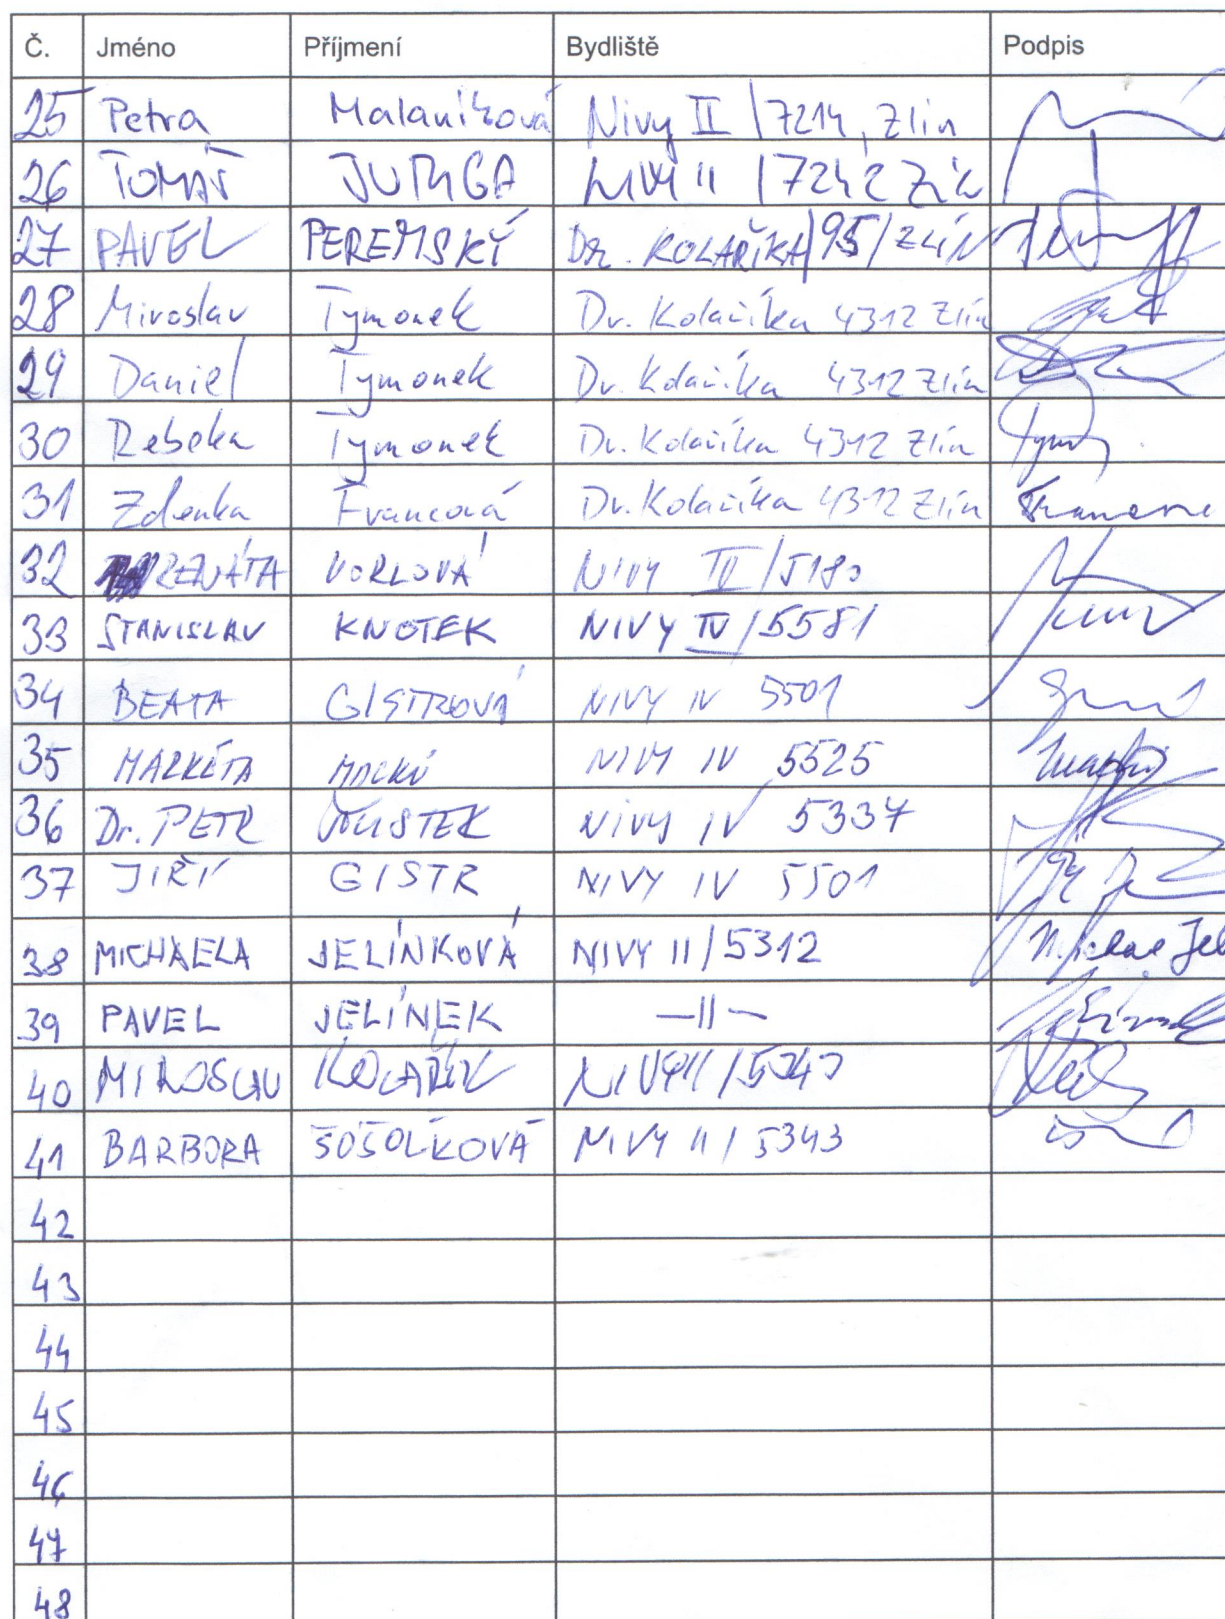 Č. Jméno Příjmení Bydliště Podpis
25 Petra Malaníková Nivy II /7214, Zlín
26 TOMÁŠ JURIGA NIVY II /7242
27 PAVEL PEREMSKÝ DR. KOLAŘÍKA /95/ ZLÍN
28 Miroslav Tymonek Dr. Kolaříka 4312 Zlín
29 Daniel Tymonek Dr. Kolaříka 4312 Zlín
30 Rebeka Tymonek Dr. Kolaříka 4312 Zlín
31 Zdenka Francová Dr. Kolaříka 4312 Zlín
32 RENÁTA VORLOVÁ NIVY IV/5180
33 STANISLAV KNOTEK NIVY IV/5581
34 BEATA GISTROVÁ NIVY IV 5501
35 MARKÉTA MACKŮ NIVY IV 5525
36 Dr. PETR NIVY IV 5337
37 JIŘÍ GISTR NIVY IV 5501
38 MICHAELA JELÍNKOVÁ NIVY II/5312
39 PAVEL JELÍNEK —II—
40 MIROSLAV KOLAŘÍK NIVY II /5343
41 BARBORA ŠOŠOLÍKOVÁ NIVY II / 5343
42
43
44
45
46
47
48